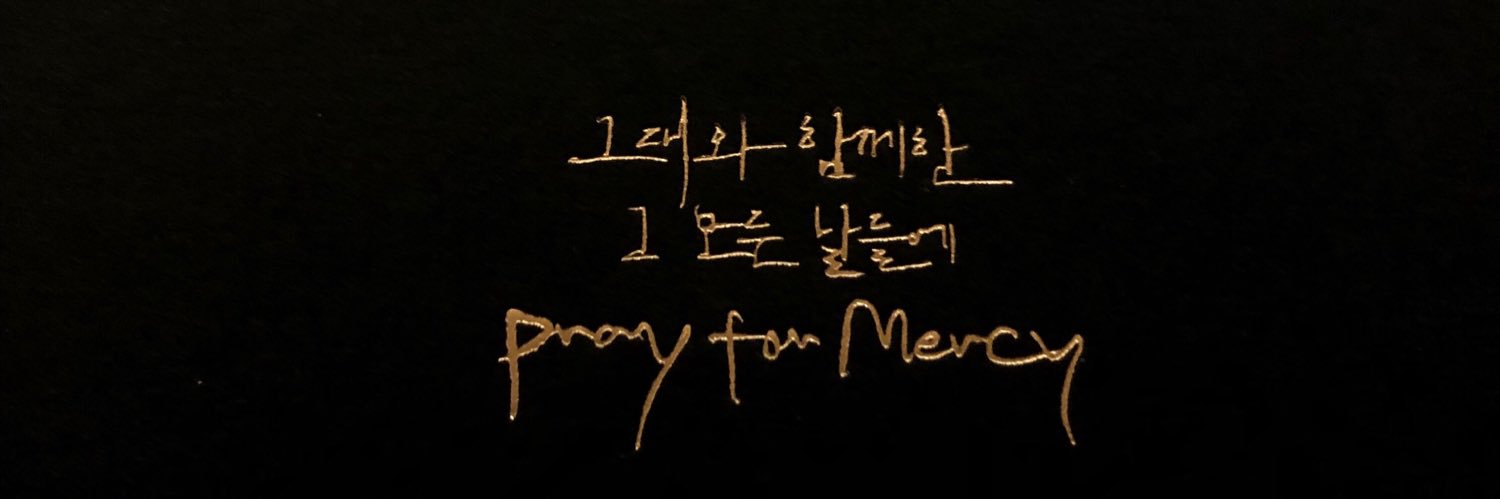 그대와 함께한
그 모든 날들에
pray for Mercy